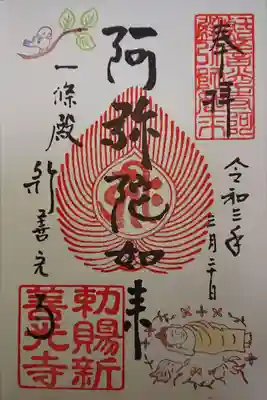 奉拝
令和三年
月二十日
阿弥陀如来
一條殿 新善光寺
勅賜新
善光寺